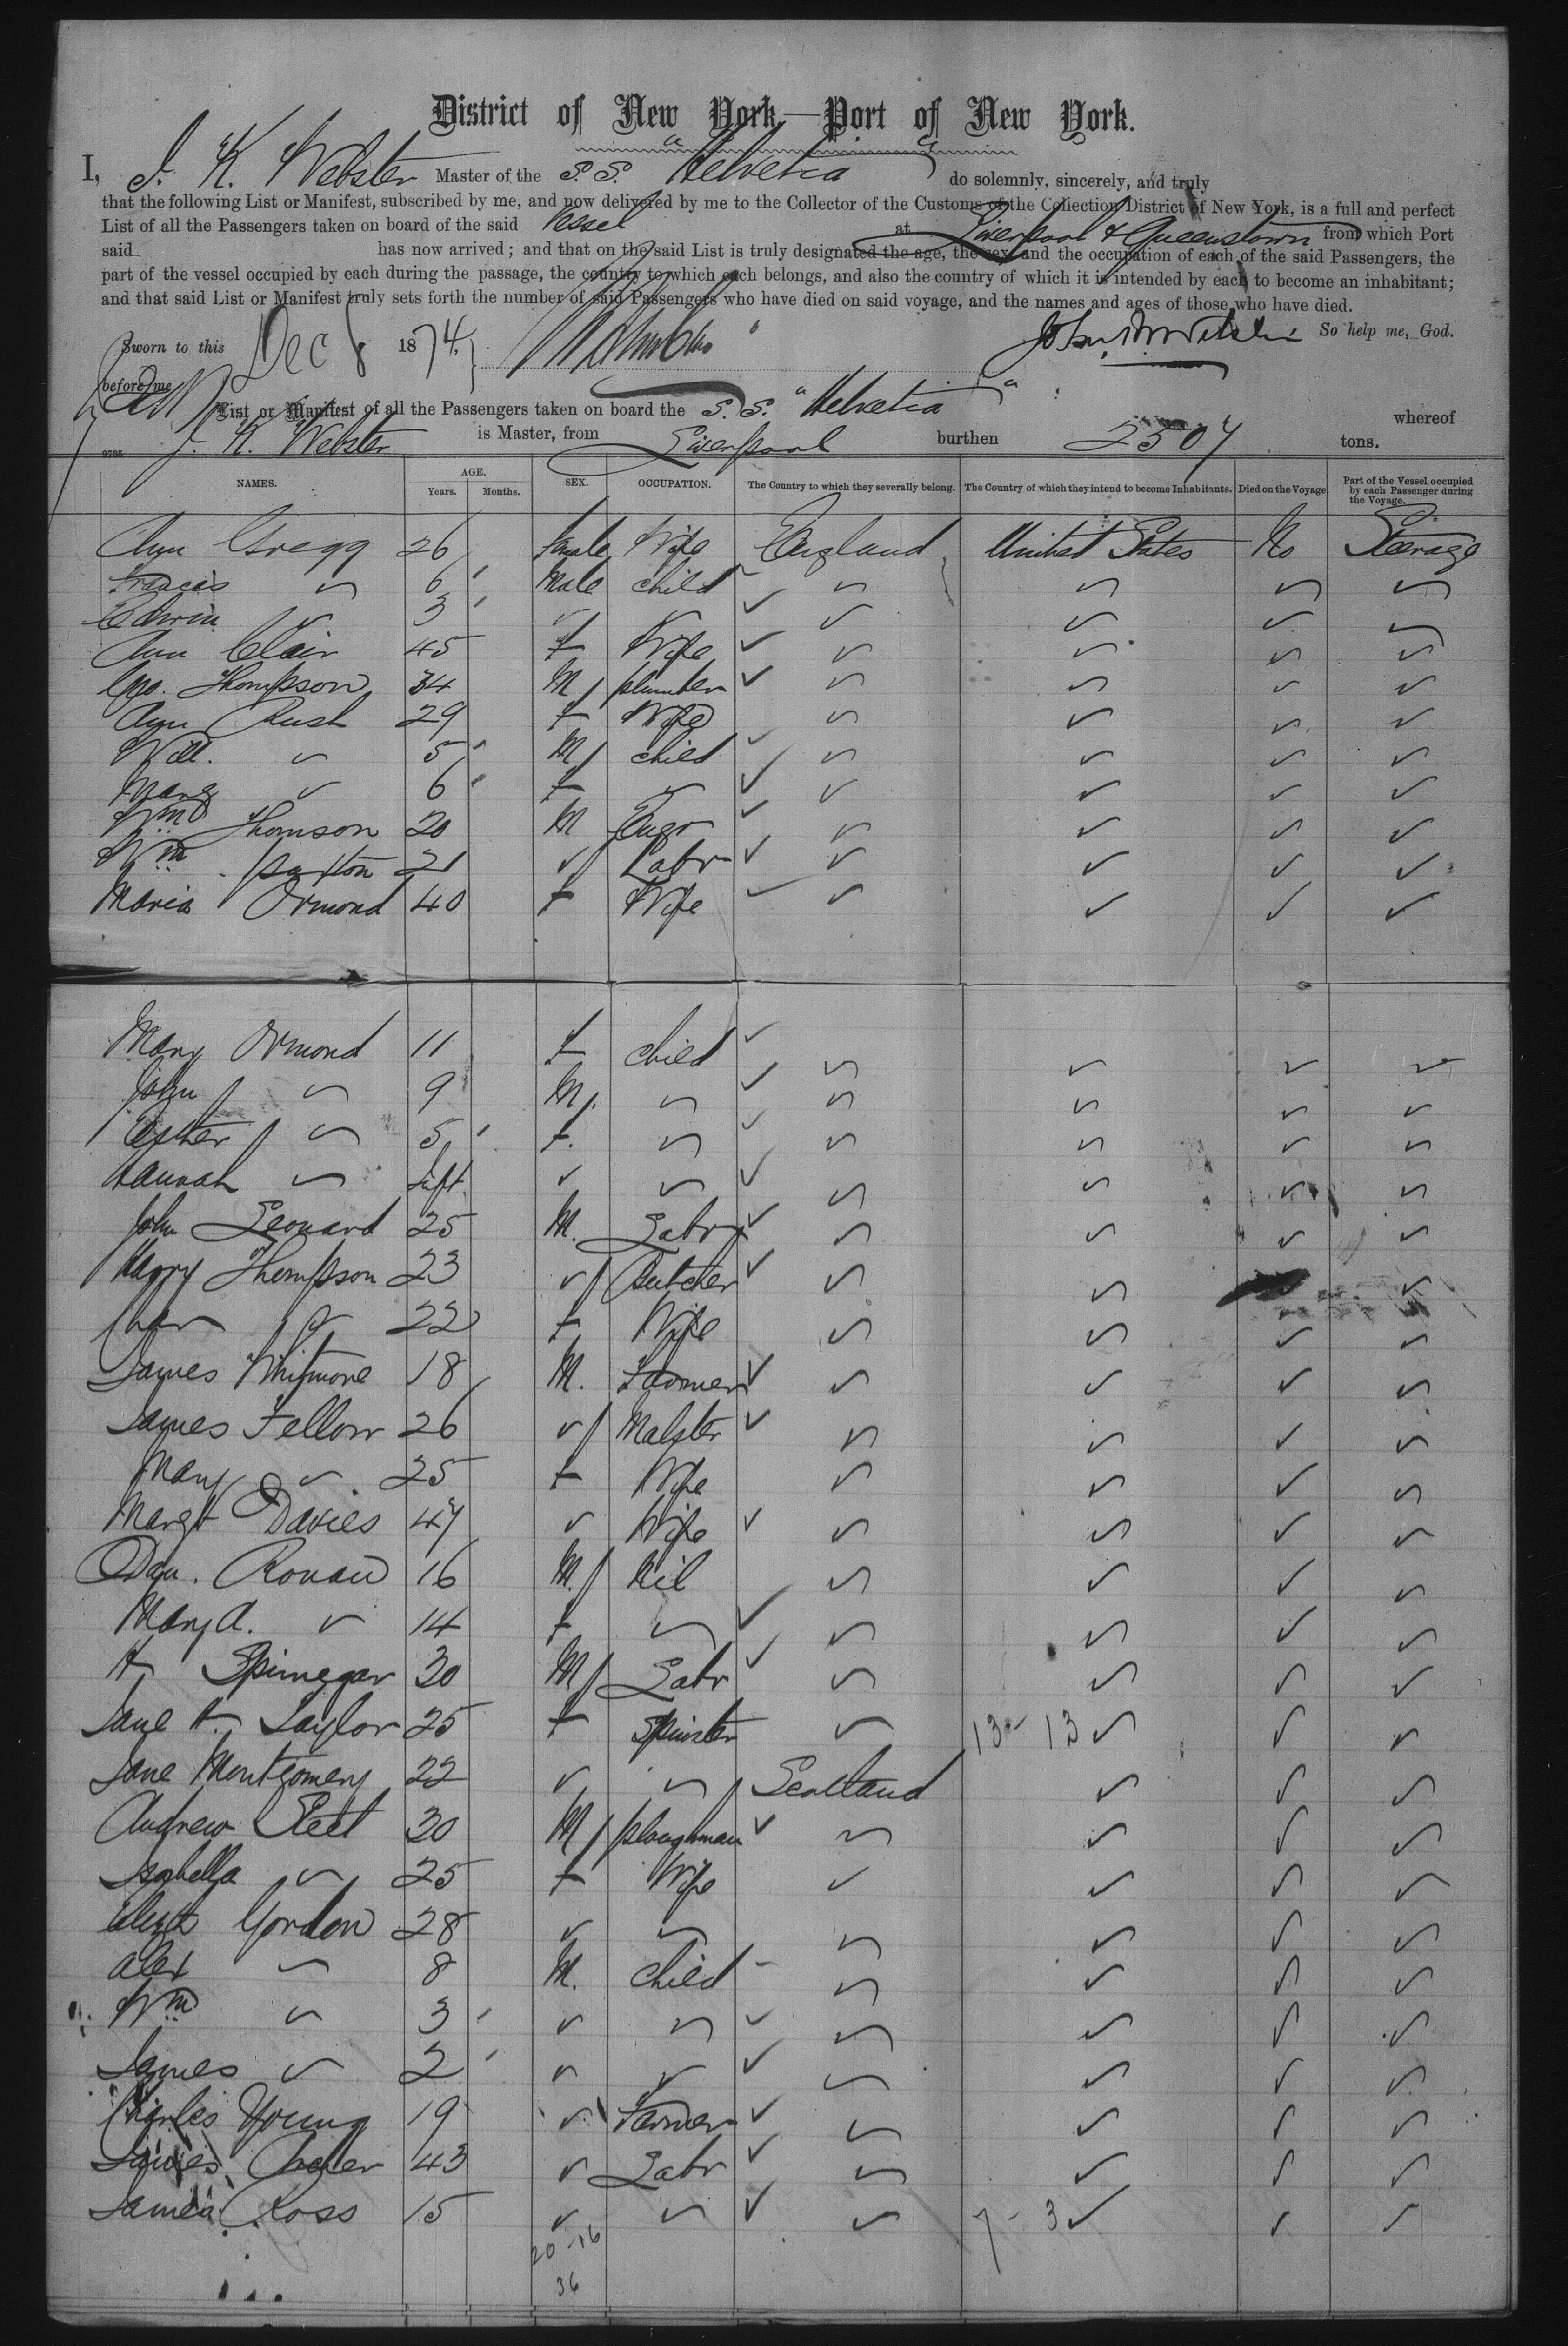 District of New York—Port of New York.
I, J. K. Webster Master of the S.S. "Helvetia" do solemnly, sincerely, and truly
that the following List or Manifest, subscribed by me, and now delivered by me to the Collector of the Customs of the Collection District of New York, is a full and perfect
List of all the Passengers taken on board of the said Vessel at Liverpool & Queenstown from which Port
said has now arrived; and that on the said List is truly designated the age, the sex, and the occupation of each of the said Passengers, the
part of the vessel occupied by each during the passage, the country to which each belongs, and also the country of which it is intended by each to become an inhabitant;
and that said List or Manifest truly sets forth the number of said Passengers who have died on said voyage, and the names and ages of those who have died.
Sworn to this Dec 8 1874, So help me, God.
before me
List or Manifest of all the Passengers taken on board the S.S. "Helvetia" whereof
J. K. Webster is Master, from Liverpool burthen 2507 tons.
NAMES. AGE. Years. Months. SEX. OCCUPATION. The Country to which they severally belong. The Country of which they intend to become Inhabitants. Died on the Voyage. Part of the Vessel occupied by each Passenger during the Voyage.
Ann Gregg 26 Female Wife England United States No Steerage
Francis 6 Male child
Edwin 3
Ann Clair 45 F Wife
Geo. Thompson 34 M plumber
Ann Rush 29 F Wife
Will. 5 M child
Mary 6 F
Wm Thomson 20 M Engr
Wm 21 Labr
Maria Ormond 40 F Wife
Mary Ormond 11 F child
John 9 M.
Esther 5 F.
Hannah Inft.
John Leonard 25 M. Labr
Harry Thompson 23 Butcher
22 F Wife
James Whitmore 18 M. Farmer
James Fellow 26 Malster
Mary 25 F Wife
Margt Davies 47 Wife
Dan. Ronan 16 M. Nil
Mary A. 14 F
H 30 M Labr
Jane H. Taylor 25 F Spinster 13 - 13
Jane Montgomery 22 Scotland
Andrew 30 M ploughman
Isabella 25 F Wife
Elizth Gordon 28
Alex 8 M. child
Wm 3
James 2
Charles Young 19 Farmer
James 43 Labr
James Ross 15 7 - 3
20 - 16
36